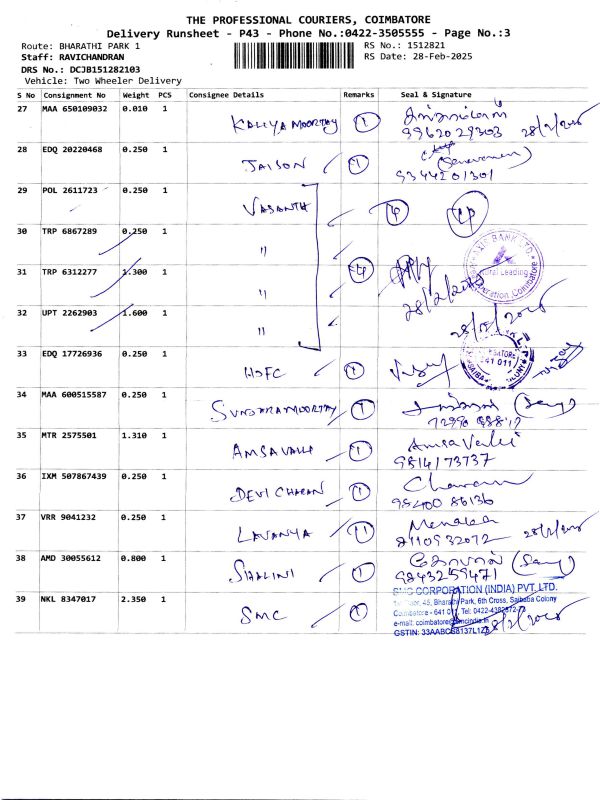 THE PROFESSIONAL COURIERS, COIMBATORE
Delivery Runsheet - P43 - Phone No.:0422-3505555 - Page No.:3
Route: BHARATHI PARK 1
RS No.: 1512821
Staff: RAVICHANDRAN
RS Date: 28-Feb-2025
DRS No.: DCJB151282103
Vehicle: Two Wheeler Delivery
S No Consignment No Weight PCS Consignee Details Remarks Seal & Signature
27 MAA 650109032 0.010 1 KALIYA MOORTHY 1
9962029303 28/2/2025
28 EDQ 20220468 0.250 1 JAISON 1
9344201301
29 POL 2611723 0.250 1 VASANTH
30 TRP 6867289 0.250 1 "
31 TRP 6312277 1.300 1 "
28/2/2025
32 UPT 2262903 1.600 1 "
28/2/2025
33 EDQ 17726936 0.250 1 HDFC 1
34 MAA 600515587 0.250 1 SUNDARAMOORTHY 1
35 MTR 2575501 1.310 1 AMSAVALLI 1 AmsaValli
9814173737
36 IXM 507867439 0.250 1 DEVI CHARAN 1 Charan
98400 86136
37 VRR 9041232 0.250 1 LAVANYA 1 Menaka
8110932072 28/2/2025
38 AMD 30055612 0.800 1 SHALINI 1
9843259471
39 NKL 8347017 2.350 1 SMC 1
SMC CORPORATION (INDIA) PVT. LTD.
45, Bharathi Park, 6th Cross, Saibaba Colony
Coimbatore - 641 011, Tel: 0422-4382572
e-mail: coimbatore@smcindia.in
GSTIN: 33AABCS8137L1Z8 28/2/2025